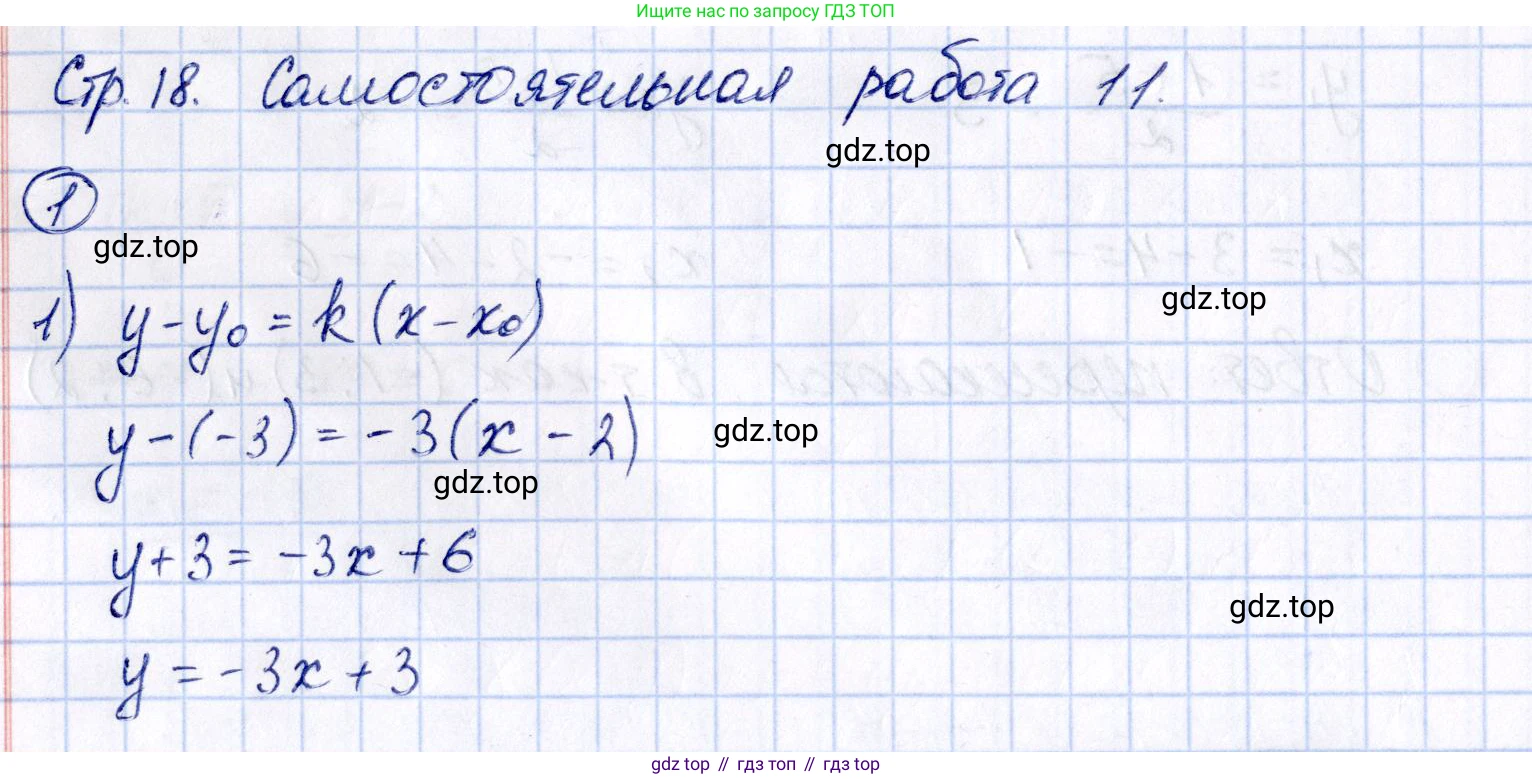 Ищите нас по запросу ГДЗ ТОП
Стр. 18. Самостоятельная работа 11.
gdz.top
1
gdz.top
1) y - y₀ = k (x - x₀)
gdz.top
y - (-3) = -3 (x - 2)
gdz.top
gdz.top
y + 3 = -3x + 6
gdz.top
y = -3x + 3
gdz top // гдз топ // гдз top